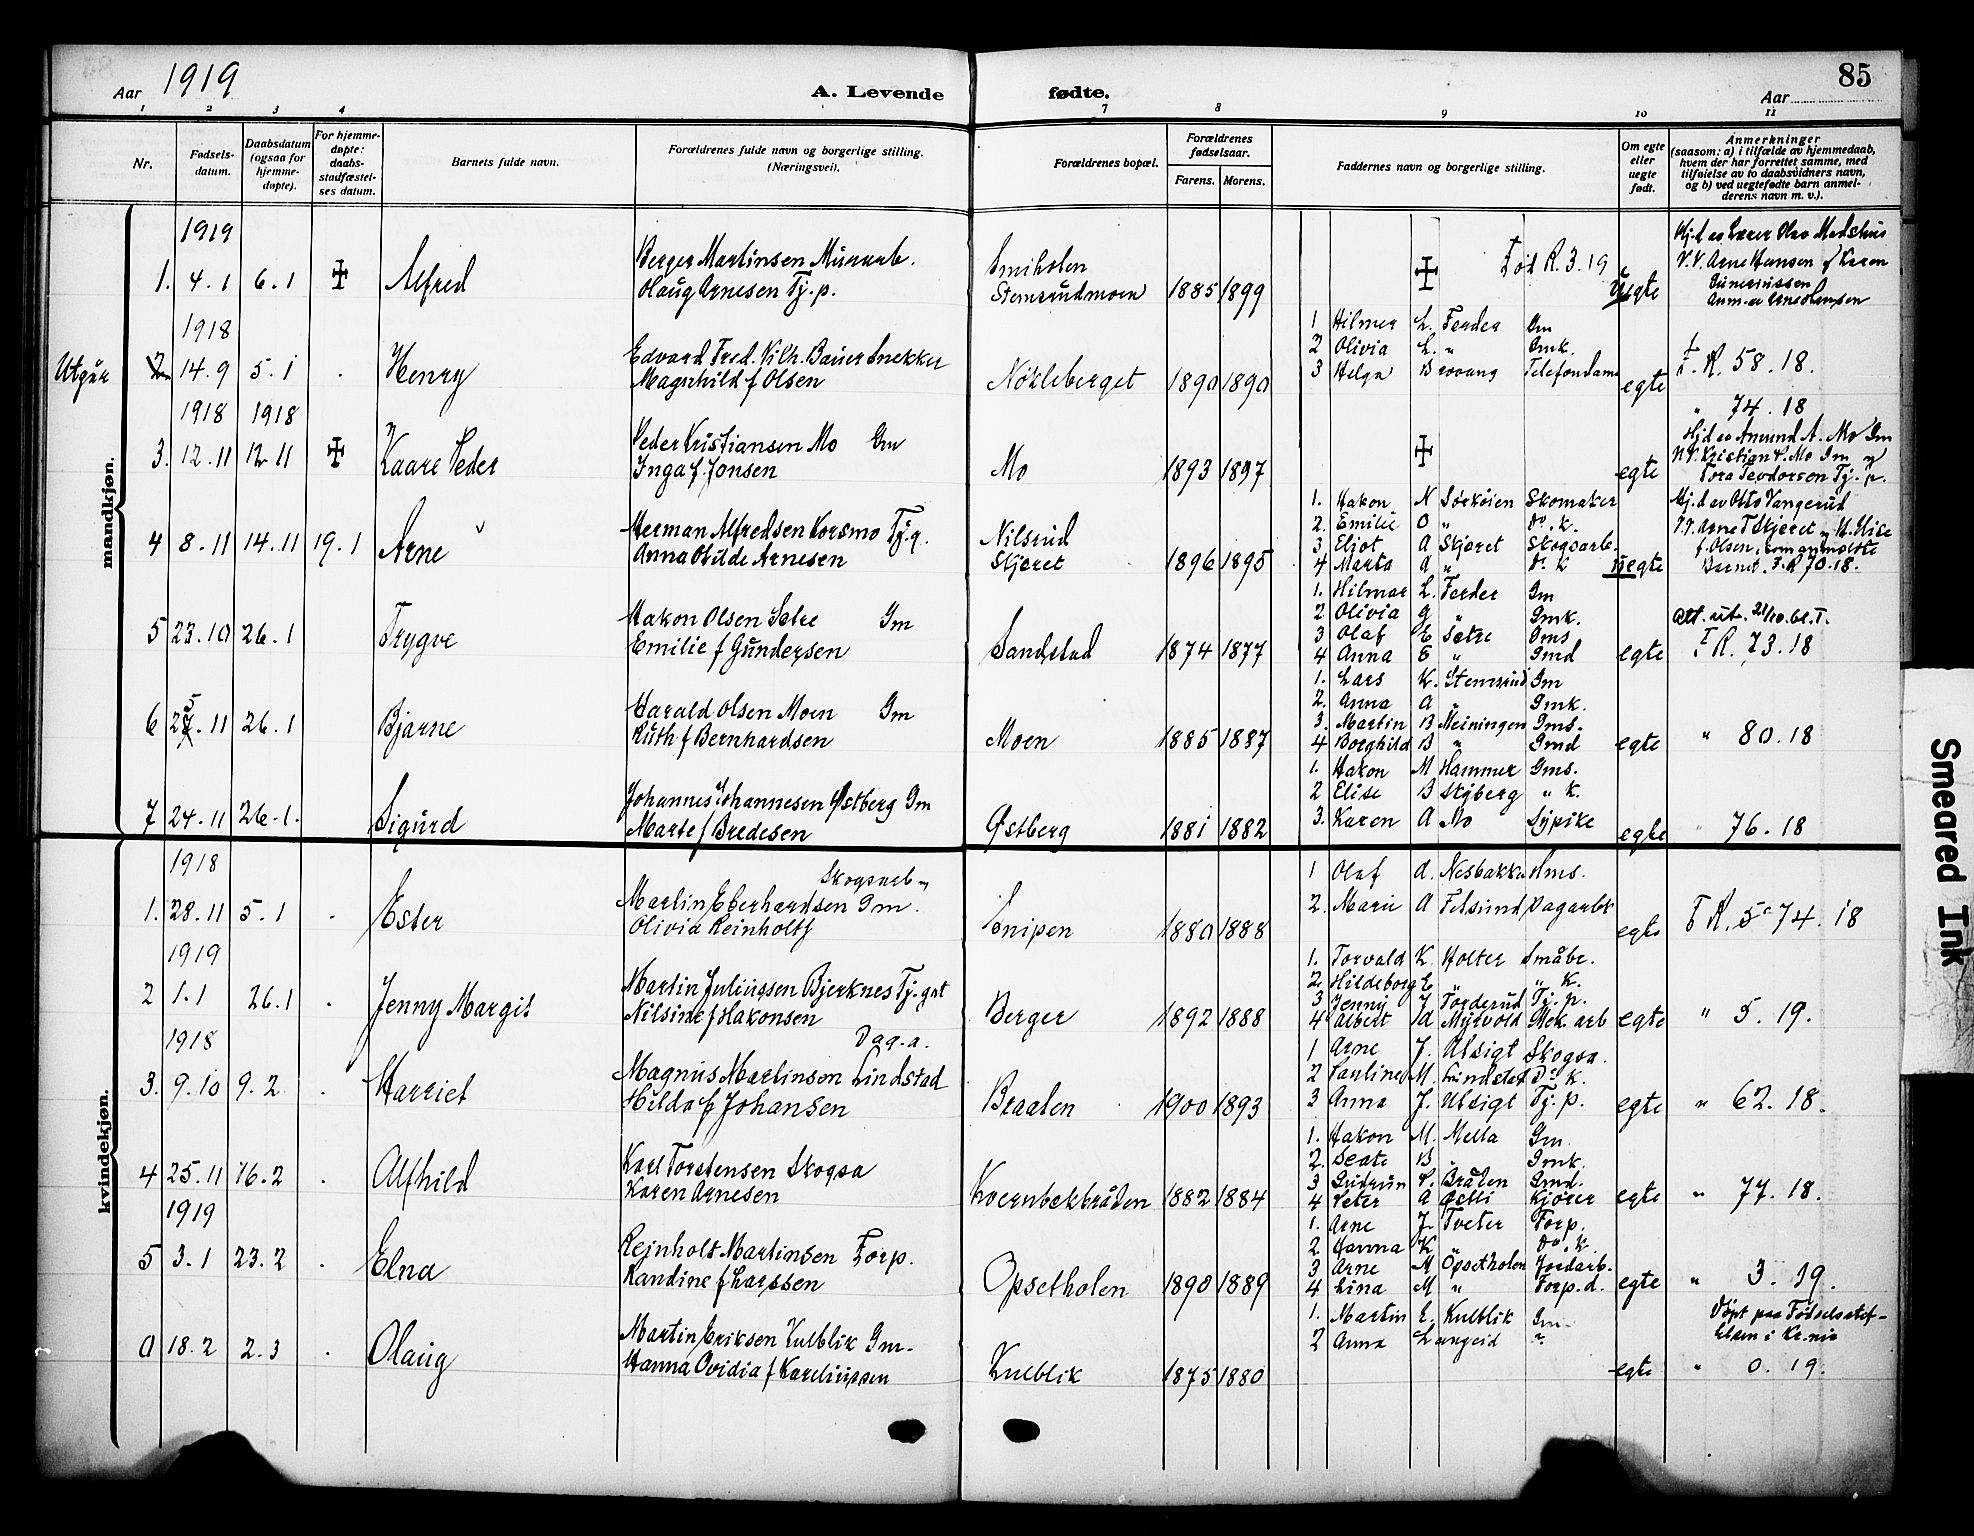 Aar 1919
A. Levende fødte.
85
Aar
1 2 3 4 7 8 9 10 11
Nr.
Fødsels-datum.
Daabsdatum (ogsaa for hjemme-døpte).
For hjemme-døpte: daabs-stadfæstel-ses datum.
Barnets fulde navn.
Forældrenes fulde navn og borgerlige stilling.
(Næringsvei).
Forældrenes bopæl.
Forældrenes fødselsaar.
Farens. Morens.
Faddernes navn og borgerlige stilling.
Om egte eller uegte født.
Anmerkninger
(saasom: a) i tilfælde av hjemmedaab,
hvem der har forrettet samme, med
tilføielse av to daabsvidners navn,
og b) ved uegtefødte barn anmel-
derens navn m. v.).
mandkjøn.
1919
1. 4.1 6.1 ✝ Alfred
Berger Martinsen
Olaug Arnesen Tj.p.
Smiholen
Stemsrudmoen
1885 1899
✝ Død R. 3.19
Uegte
Hj.d av Lærer Olav
V.V. Arne Hansen Karen
1918
Utgår 2 14.9 5.1 . Henry
Edvard Fred. Vilh. Bauer Snekker
Magnhild f Olsen
Nökleberget
1890 1890
1 Hilmer L. Ferder Gm
2 Olivia L. " Gmk.
3 Helga B Telefondame
egte
F. R. 58.18.
1918 1918
3. 12.11 12 11 ✝ Kaare Peder
Peder Kristiansen Mo Gm
Inga f. Jonsen
Mo
1893 1897
✝
egte
" 74.18
Hj.d av Amund A. Mo Gm
V.V. Kristian P. Mo Gm og
Tora Teodorsen Tj.p.
4 8.11 14.11 19.1 Arne
Herman Alfredsen Korsmo Tj.g.
Anna Otilde Arnesen
Nilsrud
Skjeret
1896 1895
1. Hakon N Sörkoien Skomaker
2. Emilie O " Do. k.
3. Eliot A Skjeret Skogsarb.
4 Marta A " Do k
uegte
Hj.d av Otto Vangerud
V.V. Arne T Skjeret
f. Olsen, som anmeldte
Barnet. F.R 70.18.
5 23.10 26.1 Trygve
Hakon Olsen Setre Gm
Emilie f Gundersen
Sandstad
1874 1877
1. Hilmar L. Ferder Gm
2 Olivia G " Gmk.
3 Olaf E Setre Gms
4 Anna E " Gmd
egte
Att. utst. 21/10.61. T.
F. R. 73.18
6 25.11 26.1 Bjarne
Harald Olsen Moen Gm
Ruth f Bernhardsen
Moen
1885 1887
1. Lars K. Stemsrud Gm
2. Anna A " Gmk.
3. Martin B Meiningen Gms.
4 Borghild B " Gmd
egte
" 80.18
7 24.11 26.1. Sigurd
Johannes Johannesen Østberg Gm
Marte f Bredesen
Østberg
1881 1882
1. Hakon M Hammer Gms.
2 Elise B Nyberg " k.
3. Karen A Mo Sypike
egte
" 76.18
kvindekjøn.
1918
1. 28.11 5.1 . Ester
Skogsarb
Martin Eberhardsen Gm.
Olivia Reinholt
Snipen
1880 1888
1 Olaf A. Nesbakken Gms.
2. Marie A Felsund Dagarb
egte
F R. 74.18
1919
2 1.1 26.1 . Jenny Margit
Martin Juliussen Bjerknes Tj.gut
Nilsine f Hakonsen
Berger
1892 1888
1. Torvald K Holter Småbr.
2. Hildeborg E " " K.
3 Jenny J Törderud Tj.p.
4 Albert Id Myrvold Mek.arb
egte
" 5.19.
1918
3. 9.10 9.2 . Harriet
Dag.a.
Magnus Martinsen Lindstad
Hilda f Johansen
Braaten
1900 1893
1 Arne J. Utsigt Skogsa.
2 Pauline M. Lundstad Do k.
3 Anna J. Utsigt Tj.p.
egte
" 62.18.
4 25.11 16.2 . Alfhild
Karl Torstensen Skogsa
Karen Arnesen
Kvernbekbråden
1882 1884
1. Hakon M. Mella Gm.
2. Beate B " Gmk.
3 Gudrun P. Bråten Gmd.
4 Peter A Kjører
egte
" 77.18.
1919
5 3.1 23.2 . Elna
Reinholt Martinsen Forp.
Randine f Larssen
Opsetholen
1890 1889
1. Arne J. Tveter Forp.
2 Hanna K " Do. k.
3 Arne M Opsetholen Jordarb.
4 Lina M " Forp.d.
egte
" 3.19.
0 18.2 2.3 . Olaug
Martin Eriksen Kulblik Gm.
Hanna Ovidia f Kareliussen
Kulblik
1875 1880
1. Martin E. Kulblik Gm
2 Anna Langeid "
egte
Döpt paa Fødselsstif-
telsen i Kr.nia
" 0.19.
Smeared Ink